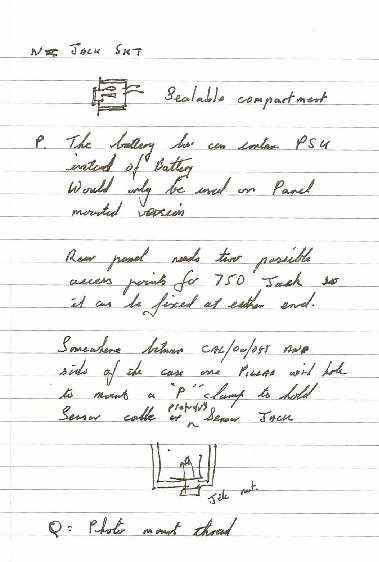 JACK SKT
Sealable compartment
P. The battery box can contain PSU
instead of Battery
Would only be used on Panel
mounted version
Rear panel needs two possible
access points for 750 Jack so
it can be fixed at either end.
Somewhere between CAL/ON/OFF AND
side of the case one PILLAR with hole
to mount a "P" clamp to hold
Sensor cable or Sensor JACK
nut.
Q: Photo mount thread